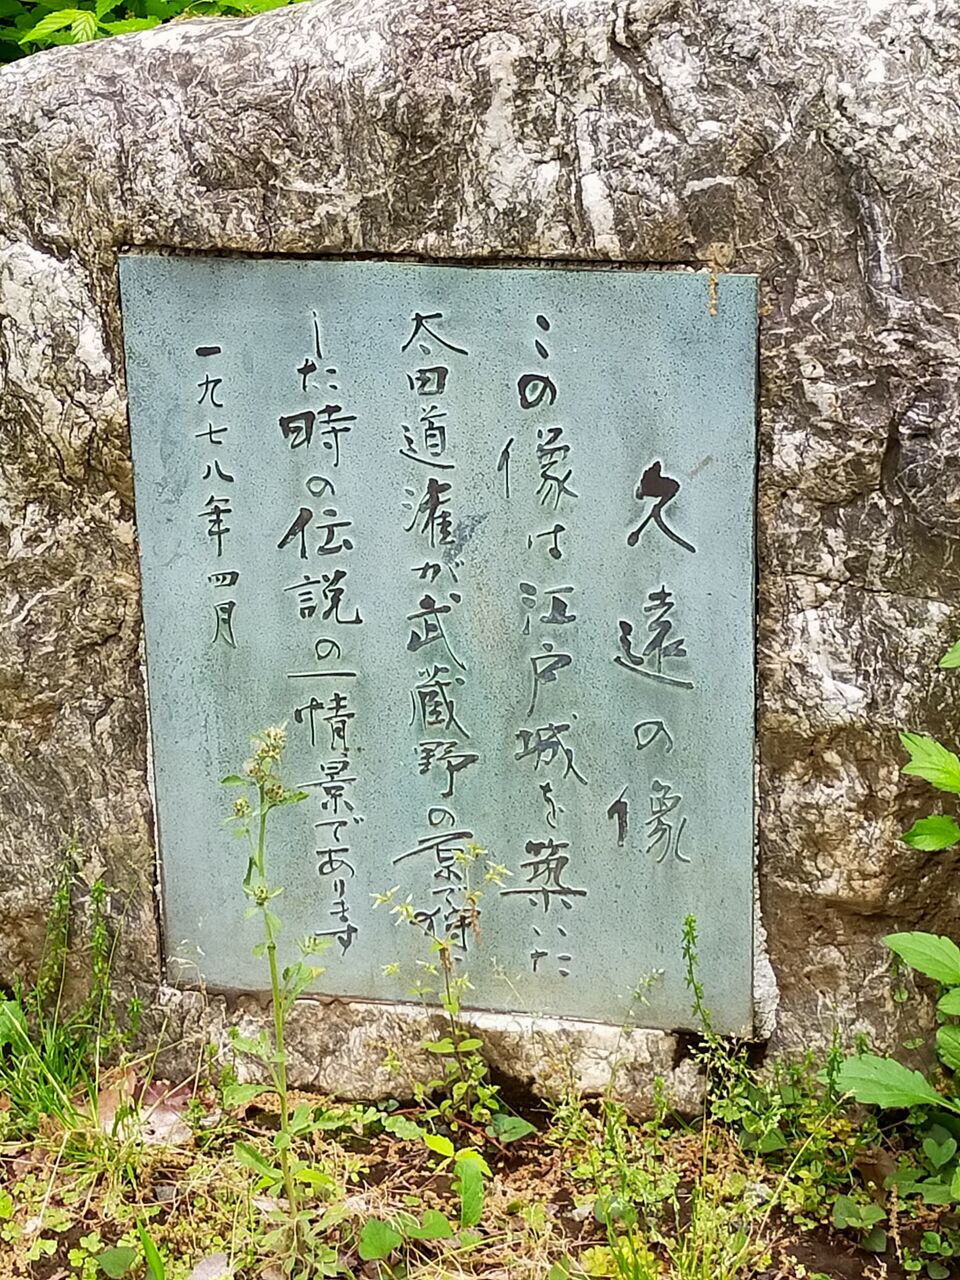 久遠の像
この像は江戸城を築いた
太田道灌が武蔵野の原で狩
した時の伝説の一情景であります
一九七八年四月